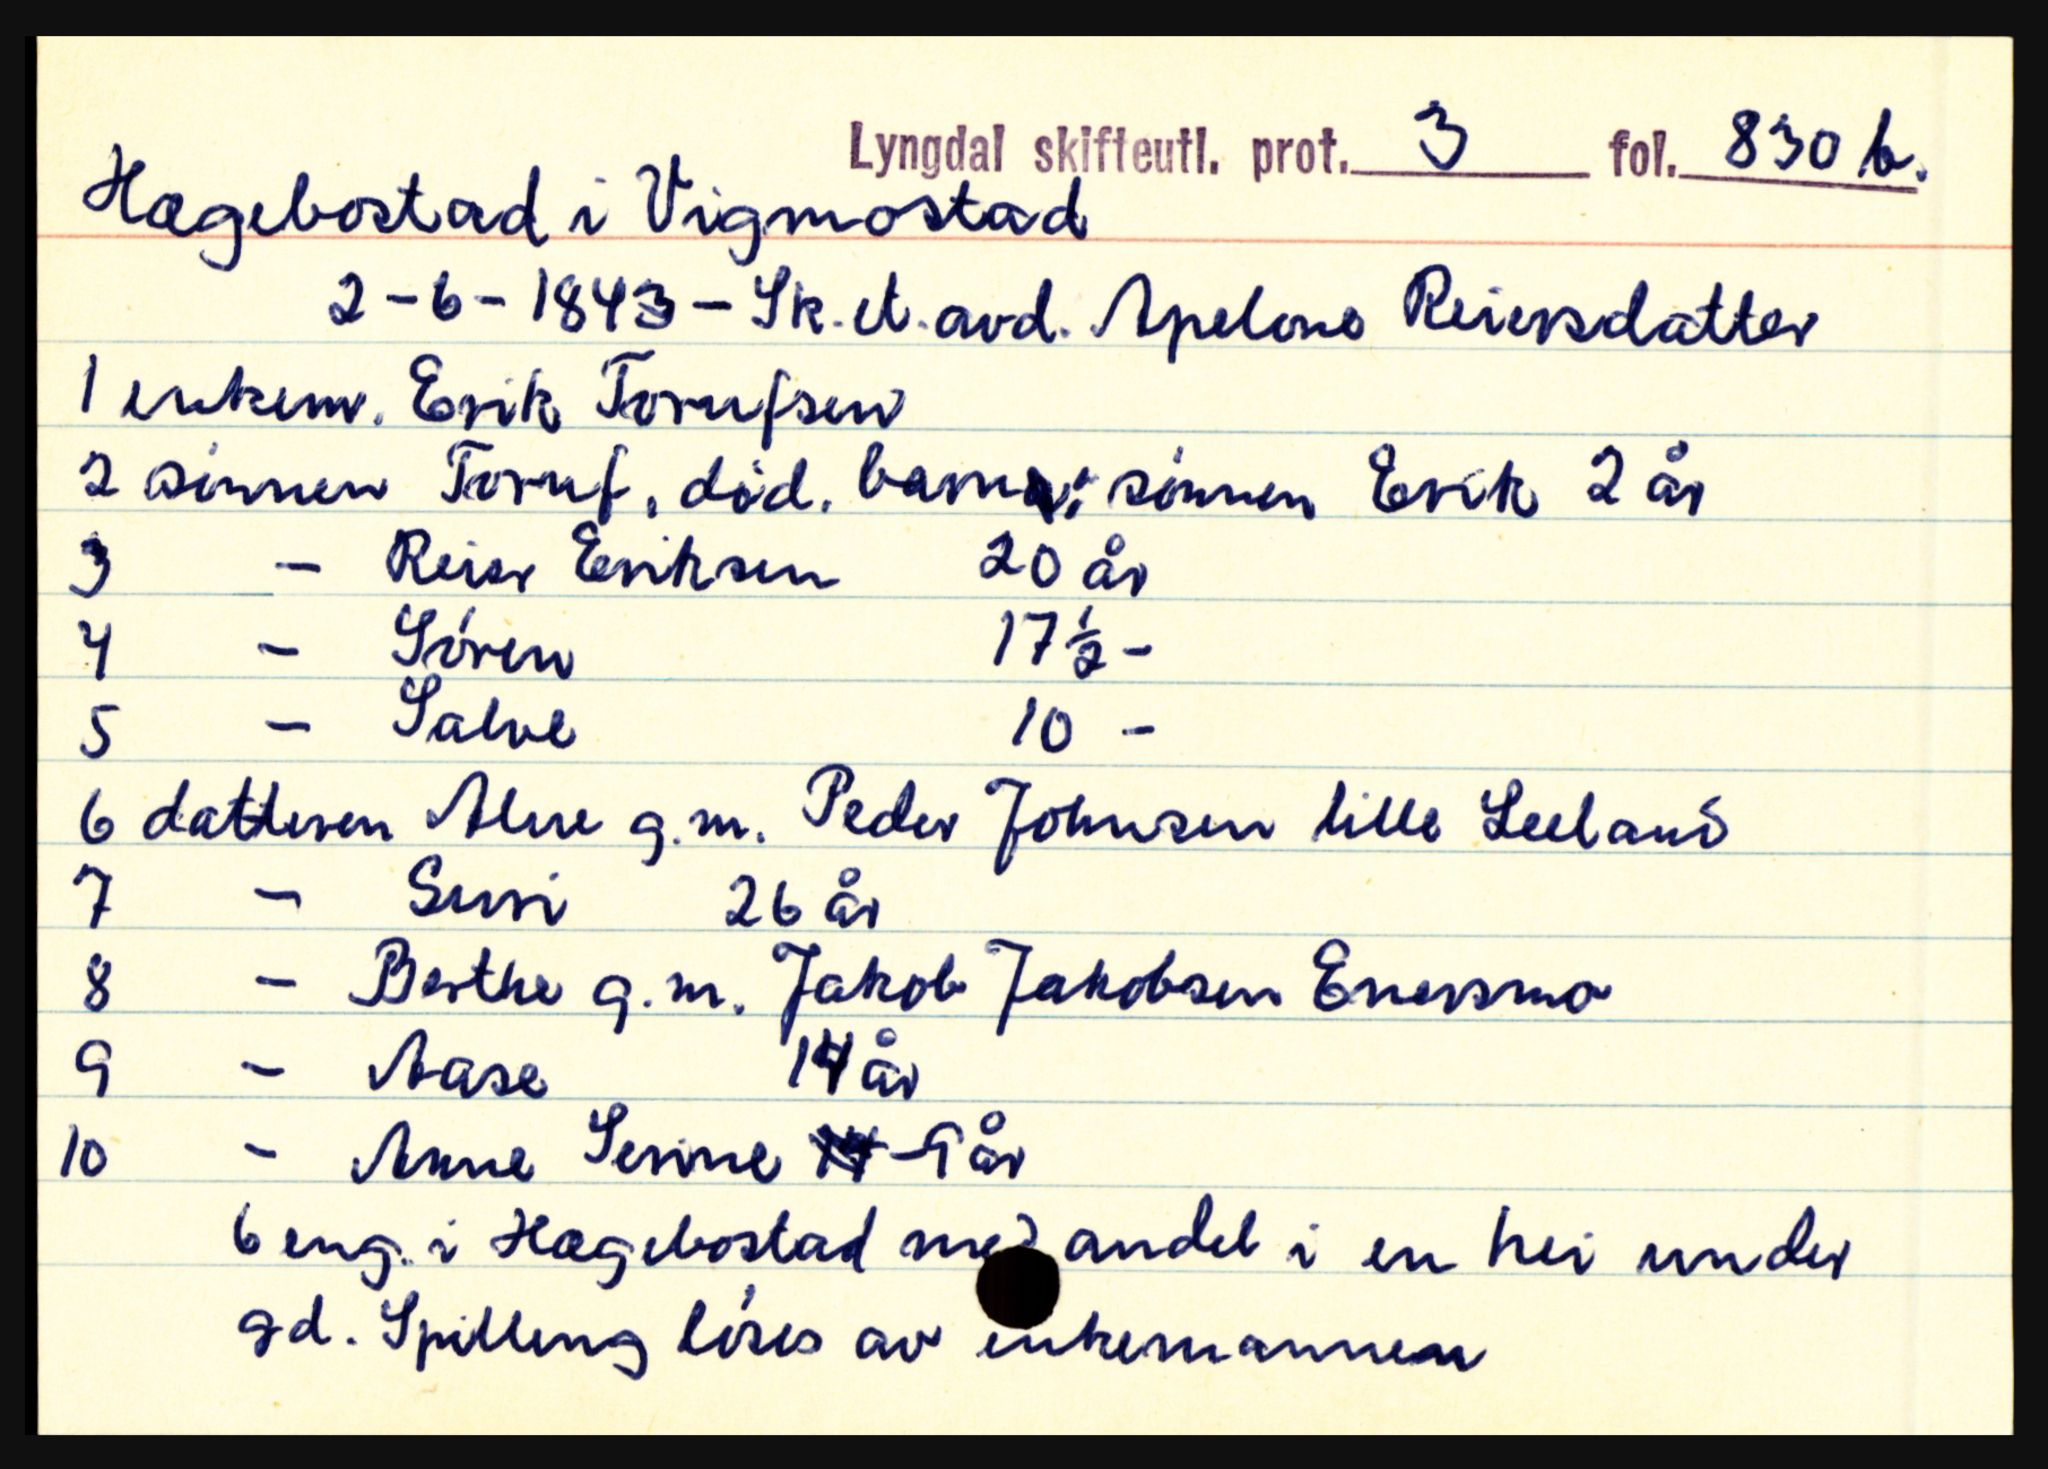 Lyngdal skifteutl. prot. 3 fol. 830 b.
Hægebostad i Vigmostad
2-6-1843 - Sk. et. avd. Apelone Reiersdatter
1 enkem. Erik Torufsen
2 sønnen Toruf, död. barn: sønnen Erik 2 år
3 - Reier Eriksen 20 år
4 - Sören 17½ -
5 - Salve 10 -
6 datteren Alne g.m. Peder Johnsen lille Seeland
7 - Siri 26 år
8 - Berthe g.m. Jakob Jakobsen Enersmo
9 - Aase 14 år
10 - Anne Serine 9 år
6 eng. i Hægebostad med andel i en hei under
gd. Spilling löses av enkemannen